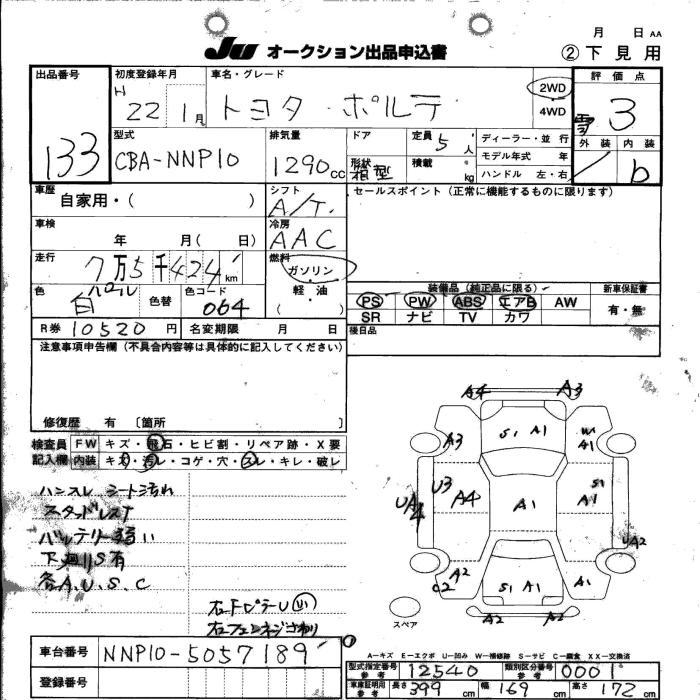 月 日 AA
JU オークション出品申込書
② 下見用
出品番号 133
初度登録年月 H 22 1月
車名・グレード トヨタ・ポルテ
2WD
4WD
評価点 3
外装 内装 b
型式 CBA-NNP10
排気量 1290cc
ドア 形状 箱型
定員 5人
積載 kg
ディーラー・並行
モデル年式 年
ハンドル 左・右
車歴 自家用・( )
シフト A/T.
セールスポイント(正常に機能するものに限ります)
車検 年 月( 日)
冷房 AAC
走行 7万5千424km
燃料 ガソリン
軽・油
( )
色 白パール 色替 色コード 064
装備品(純正品に限る)
新車保証書
PS PW ABS エアB AW
有・無
SR ナビ TV カワ
R券 10520円 名変期限 月 日
後日品
注意事項申告欄(不具合内容等は具体的に記入してください)
修復歴 有 〔箇所 〕
検査員 FW キズ・飛石・ヒビ割・リペア跡・X要
記入欄 内装 キズ・汚レ・コゲ・穴・スレ・キレ・破レ
ハンスレ シート汚れ
スタッドレス
バッテリー弱い
下廻りS有
各A.U.S.C
A4 A3
A3 S1 A1 W A1
UA4 U3 A4 A1 S1 A1 UA2
A2 C2 S1 A1 A1
A2 A2
スペア
車台番号 NNP10-5057189
登録番号
A－キズ E－エクボ U－凹み W－補修跡 S－サビ C－腐食 XX－交換済
型式指定番号 参考 12540 類別区分番号 参考 0001
車庫証明用 参考 長さ 399cm 幅 169cm 高さ 172cm